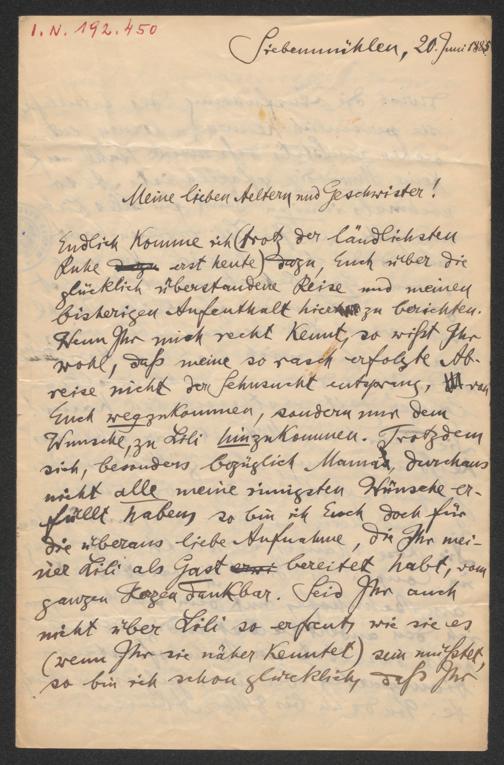 I.N. 192.450
Siebenmühlen, 20. Juni 1885
Meine lieben Aeltern und Geschwister!
Endlich komme ich (trotz der ländlichsten
Ruhe dazu erst heute) dazu, Euch über die
glücklich überstandene Reise und meinen
bisherigen Aufenthalt hier zu berichten.
Wenn Ihr mich recht kennt, so wißt Ihr
wohl, daß meine so rasch erfolgte Ab-
reise nicht der Sehnsucht entsprang, von
Euch wegzukommen, sondern nur dem
Wunsche, zu Lili hinzukommen. Trotzdem
sich, besonders bezüglich Mamas, durchaus
nicht alle meine innigsten Wünsche er-
füllt haben, so bin ich Euch doch für
die überaus liebe Aufnahme, die Ihr mei-
ner Lili als Gast bereitet habt, vom
ganzen Herzen dankbar. Seid Ihr auch
nicht über Lili so erfreut, wie sie es
(wenn Ihr sie näher kenntet) sein müßtet,
so bin ich schon glücklich, daß Ihr